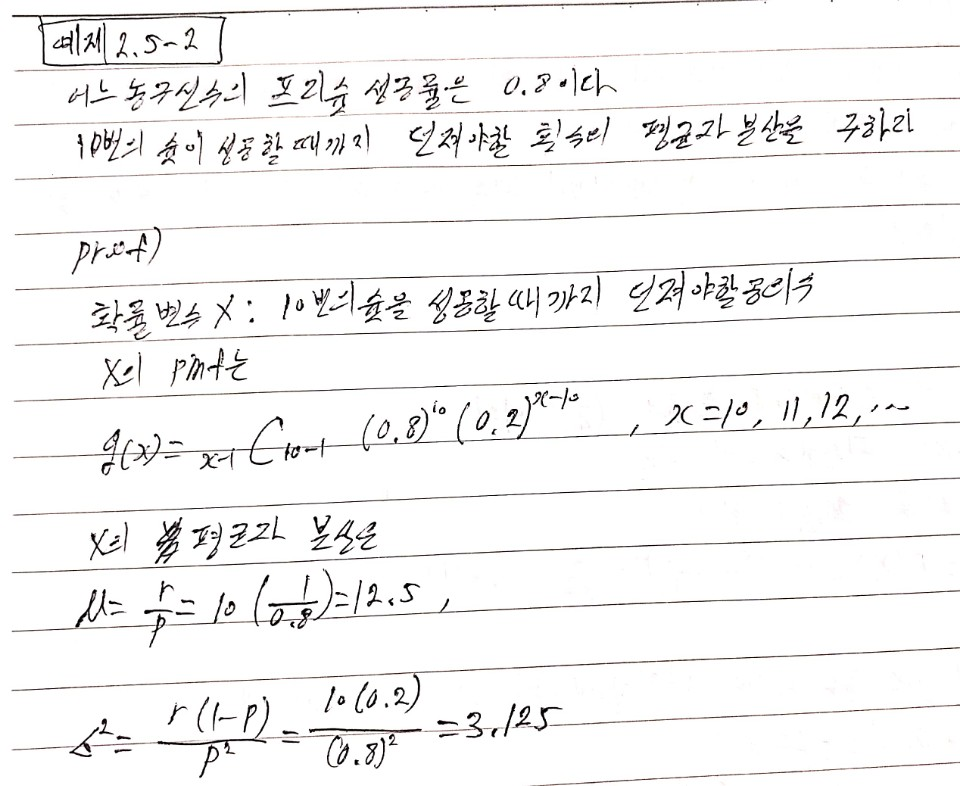 예제 2.5-2
어느 농구선수의 프리슛 성공률은 0.8이다
10번의 슛이 성공할 때까지 던져야할 횟수의 평균과 분산을 구하라
proof)
확률변수 X : 10번의 슛을 성공할 때까지 던져야할 공의 수
X의 pmf는
g(x)= x-1 C 10-1 (0.8)^10 (0.2)^x-10 , x=10, 11, 12, ...
X의 평균과 분산은
μ= r/p = 10 (1/0.8)=12.5 ,
σ²= r(1-p)/p² = 10(0.2)/(0.8)² =3.125